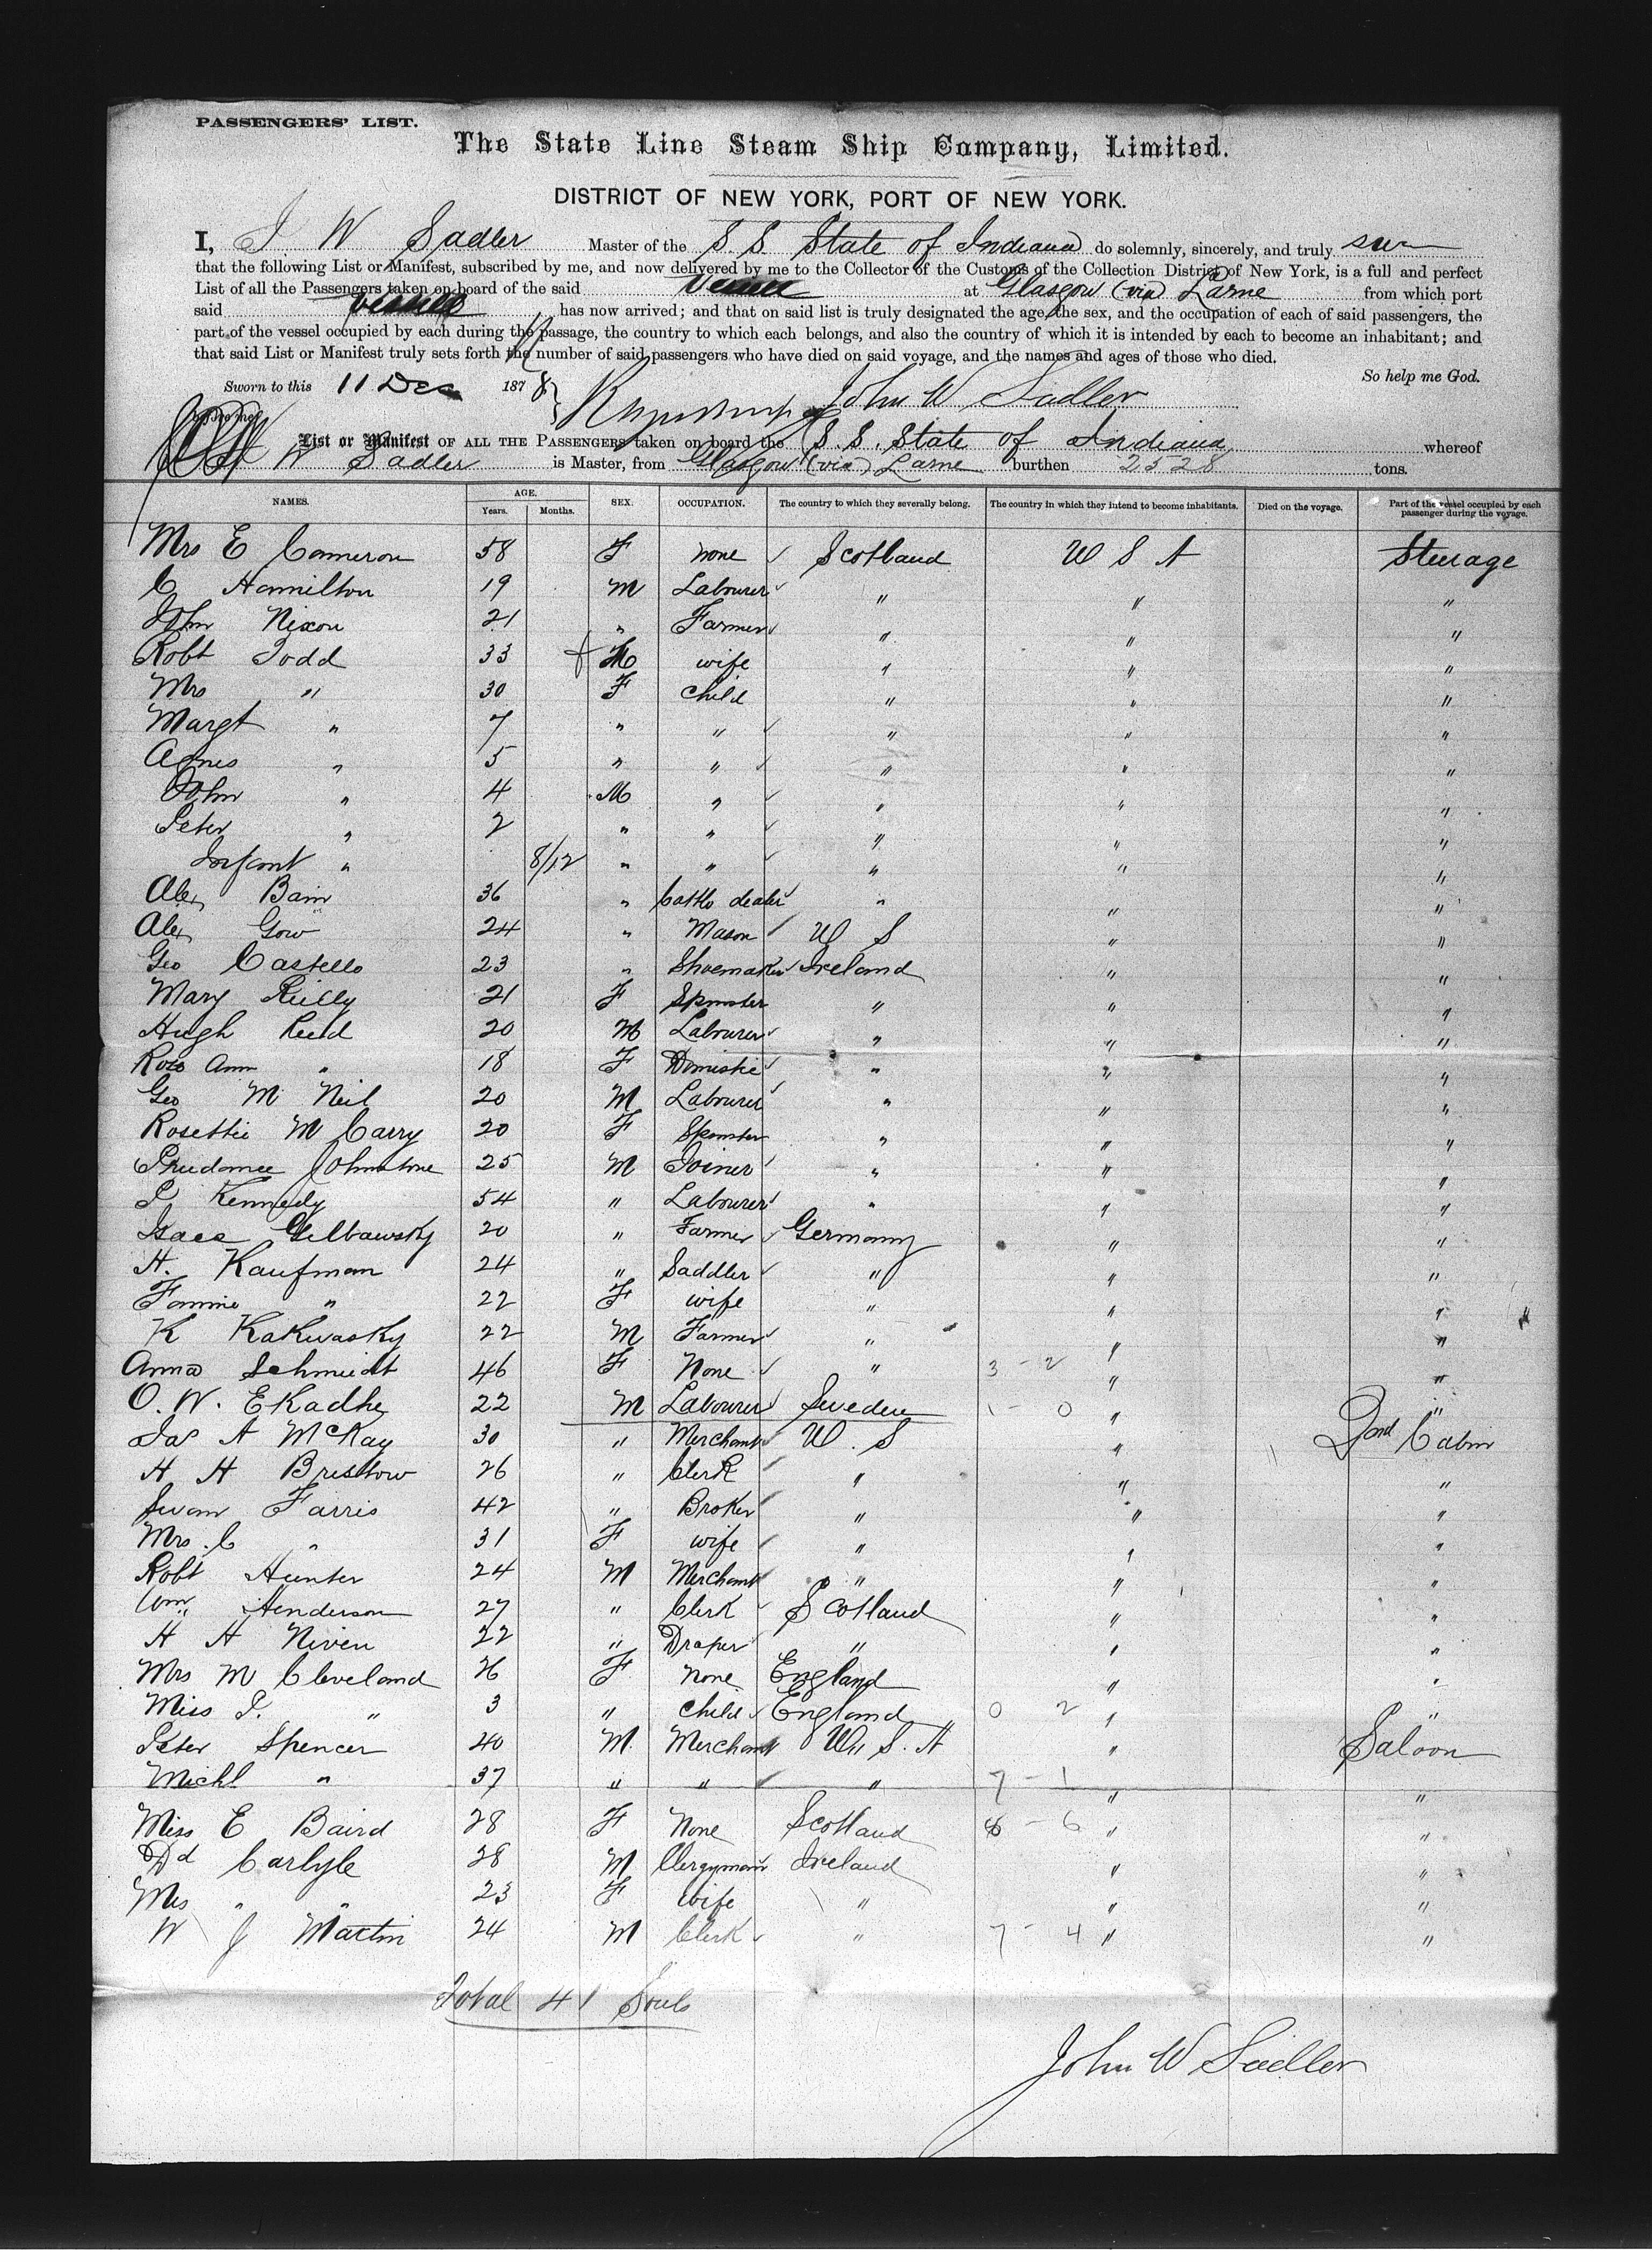 PASSENGERS' LIST.
The State Line Steam Ship Company, Limited.
DISTRICT OF NEW YORK, PORT OF NEW YORK.
I, J W Sadler Master of the S. S. State of Indiana do solemnly, sincerely, and truly
that the following List or Manifest, subscribed by me, and now delivered by me to the Collector of the Customs of the Collection District of New York, is a full and perfect
List of all the Passengers taken on board of the said at Glasgow (via) Larne from which port
said has now arrived; and that on said list is truly designated the age, the sex, and the occupation of each of said passengers, the
part of the vessel occupied by each during the passage, the country to which each belongs, and also the country of which it is intended by each to become an inhabitant; and
that said List or Manifest truly sets forth the number of said passengers who have died on said voyage, and the names and ages of those who died.
So help me God.
Sworn to this 11 Dec 1878 John W Sadler
before me
List or Manifest OF ALL THE PASSENGERS taken on board the S. S. State of Indiana whereof
W Sadler is Master, from Glasgow (via) Larne burthen 2528 tons.
NAMES. AGE. Years. Months. SEX. OCCUPATION. The country to which they severally belong. The country in which they intend to become inhabitants. Died on the voyage. Part of the vessel occupied by each passenger during the voyage.
Mrs E Cameron 58 F none Scotland U S A Steerage
C Hamilton 19 M Labourer " " "
John Nixon 21 " Farmer " " "
Robt Todd 33 M wife " " "
Mrs " 30 F child " " "
Margt " 7 " " " " "
Agnes " 5 " " " " "
John " 4 M " " " "
Peter " 2 " " " " "
Infant " 8/12 " " " " "
Alex Bain 36 " Cattle dealer " " "
Alex Gow 24 " Mason U S " "
Geo Castello 23 " Shoemaker Ireland " "
Mary Reilly 21 F Spinster " " "
Hugh Reid 20 M Labourer " " "
Rose Ann " 18 F Domestic " " "
Geo Mc Neil 20 M Labourer " " "
Rosettie Mc Carry 20 F Spinster " " "
Prudance Johnstone 25 M Joiner " " "
P Kennedy 54 " Labourer " " "
Isaac Gelbawsky 20 " Farmer Germany " "
H. Kaufman 24 " Saddler " " "
Fannie " 22 F wife " " "
K Kakwasky 22 M Farmer " " "
Anna Schmidt 46 F None " 3 - 2 " "
O. W. Ekadhe 22 M Labourer Sweden 1 - 0 " "
Jas A McKay 30 " Merchant U. S " 2nd Cabin
H H Bristow 26 " Clerk " " "
Swan Farris 42 " Broker " " "
Mrs. C " 31 F wife " " "
Robt Hunter 24 M Merchant " " "
Wm Henderson 27 " Clerk Scotland " "
H H Niven 22 " Draper " " "
Mrs M Cleveland 26 F None England " "
Miss J. " 3 " Child England 0 2 " "
Peter Spencer 40 M. Merchant U. S. A " Saloon
Michl " 37 " " " 7 - 1 " "
Miss E Baird 28 F None Scotland 6 - 6 " "
Dd Carlyle 28 M Clergyman Ireland " "
Mrs " " 23 F wife " " "
W J Martin 24 M Clerk " 7 - 4 " "
Total 41 Souls
John W Sadler